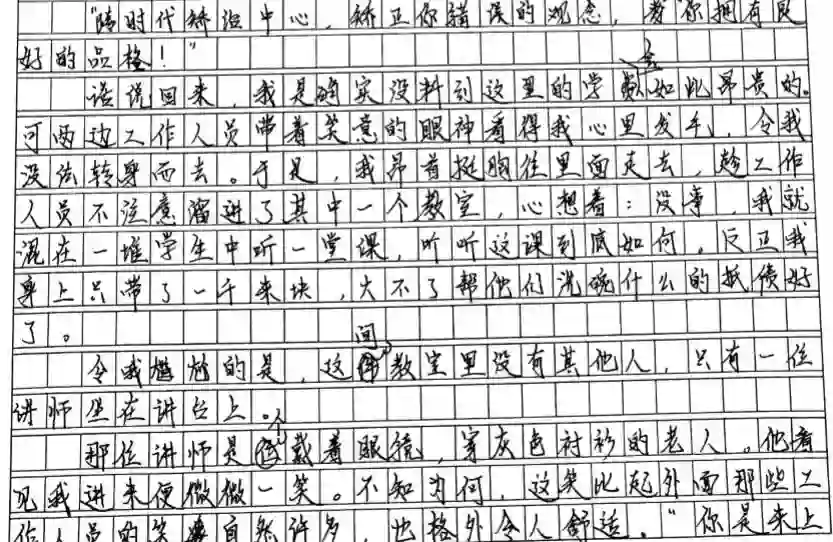 “跨时代矫治中心，矫正你错误的观念，为你拥有良
好的品格！”
话说回来，我是确实没料到这里的学费如此昂贵的。
可两边工作人员带着笑意的眼神看得我心里发毛，令我
没法转身而去。于是，我昂首挺胸往里面走去，趁工作
人员不注意溜进了其中一个教室，心想着：没事，我就
混在一堆学生中听一堂课，听听这课到底如何，反正我
身上只带了一千来块，大不了帮他们洗碗什么的抵债好
了。
令我尴尬的是，这间教室里没有其他人，只有一位
讲师坐在讲台上。
那位讲师是个戴着眼镜，穿灰色衬衫的老人。他看
见我进来便微微一笑。不知为何，这笑比起外面那些工
作人员的笑自然许多，也格外令人舒适。“你是来上